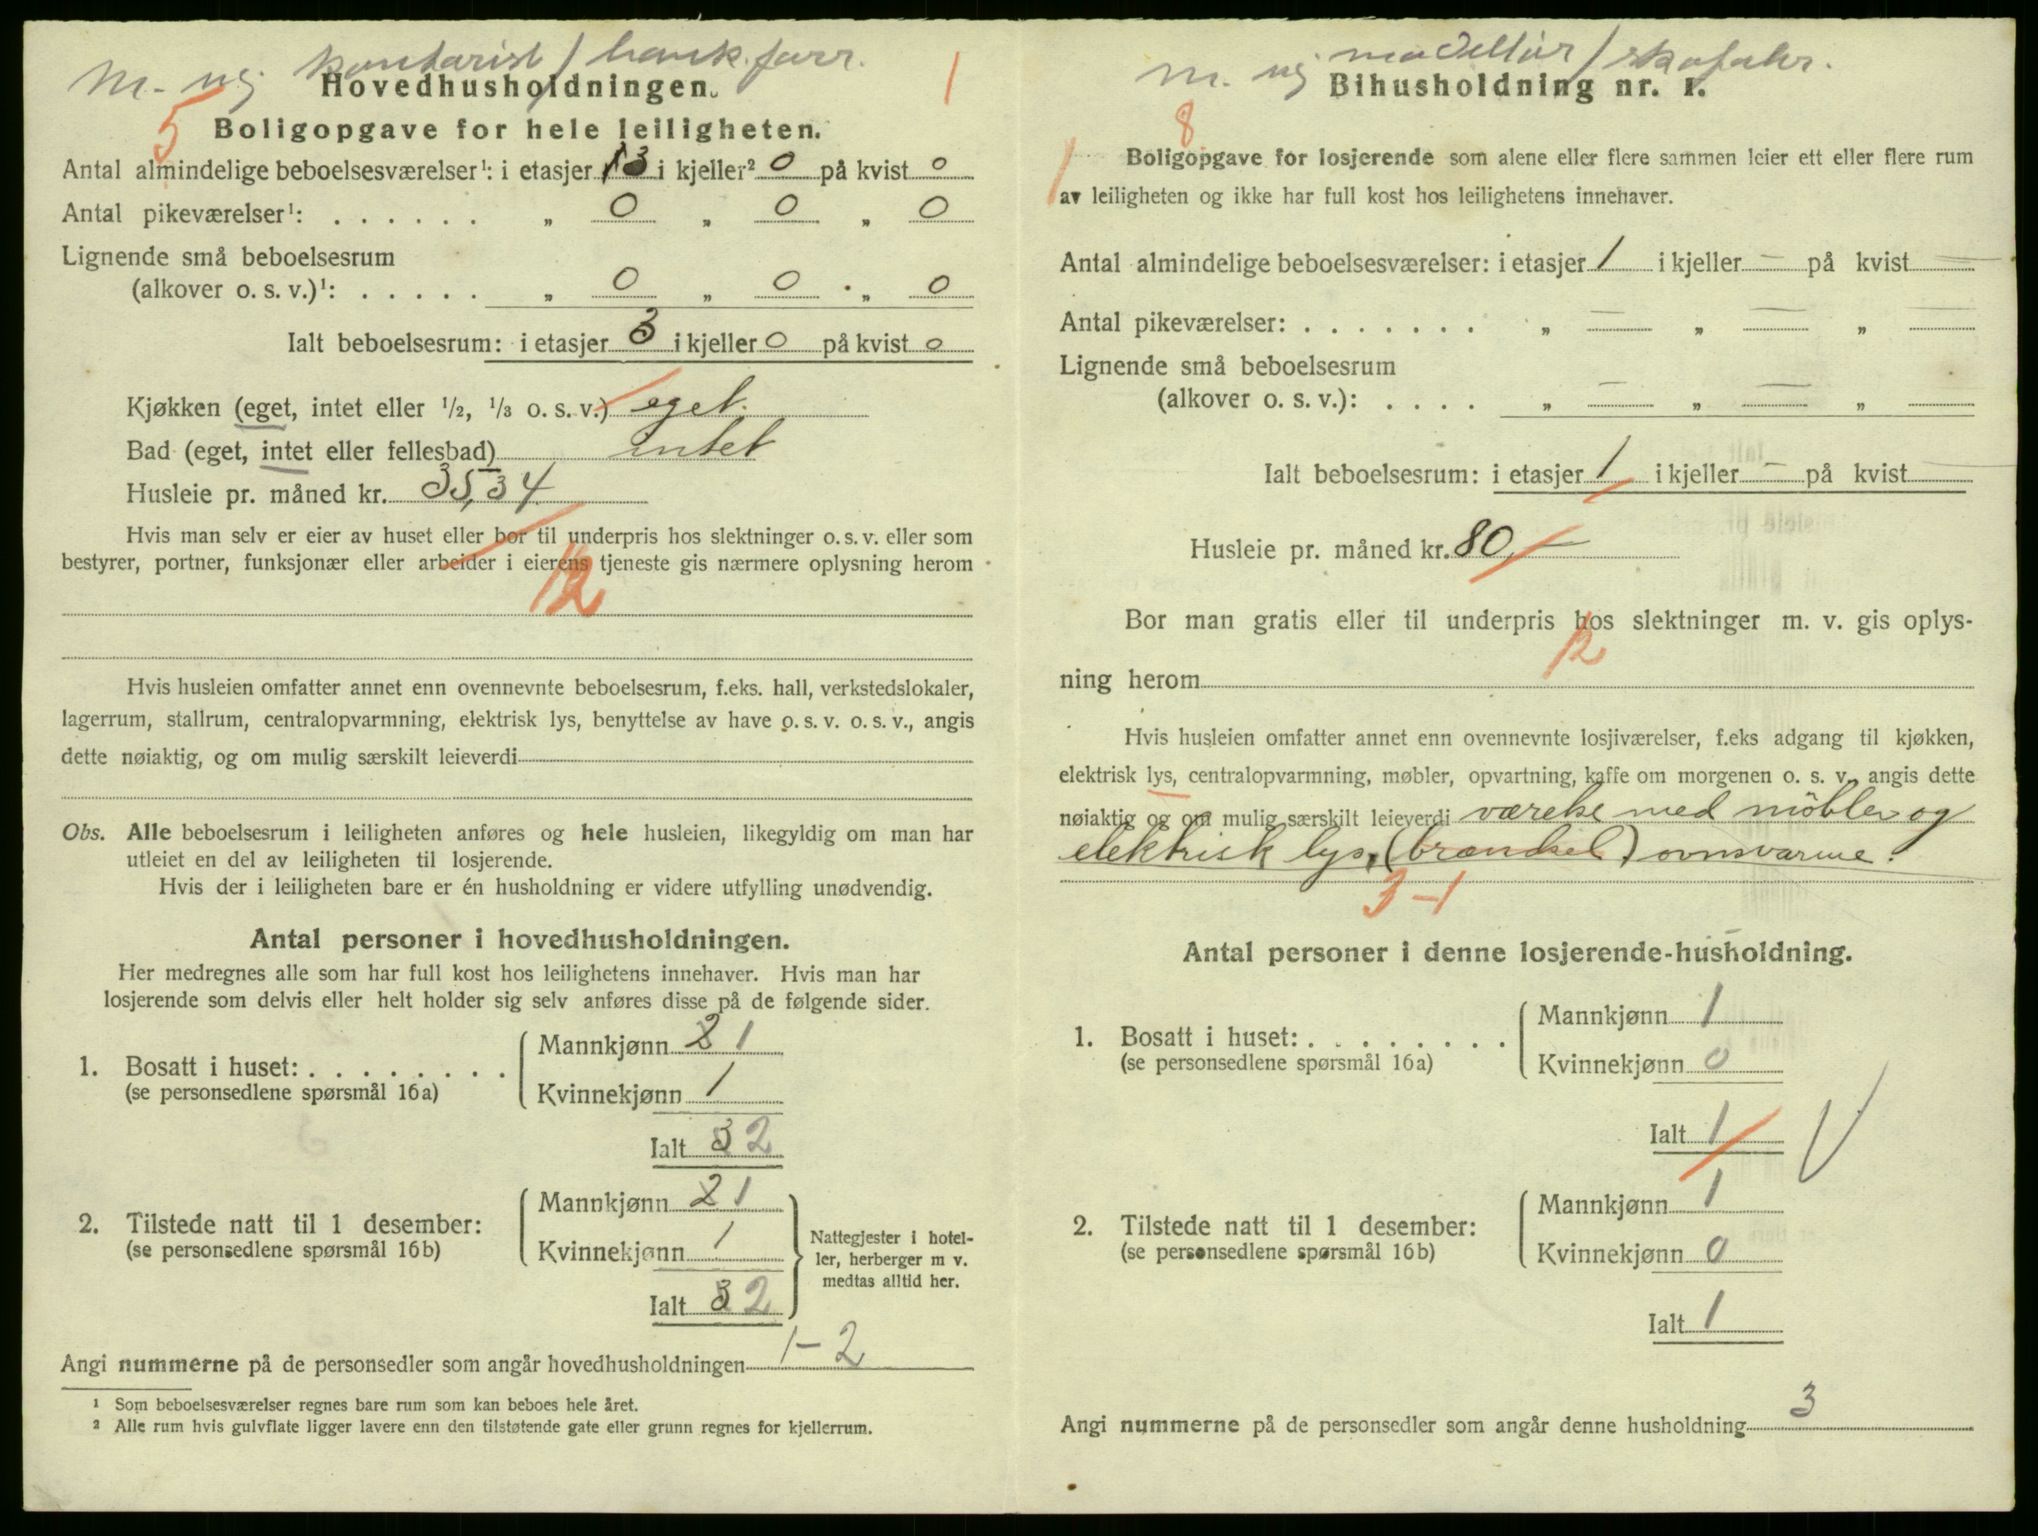 M. ug. kontorist / bank.forr.
1
Hovedhusholdningen.
5
Boligopgave for hele leiligheten.
Antal almindelige beboelsesværelser¹: i etasjer 3 i kjeller² 0 på kvist 0
Antal pikeværelser¹: . . . . . . „ 0 „ 0 „ 0
Lignende små beboelsesrum
(alkover o. s. v.)¹: . . . . . „ 0 „ 0 „ 0
Ialt beboelsesrum: i etasjer 3 i kjeller 0 på kvist 0
Kjøkken (eget, intet eller ½, ⅓ o. s. v.) eget.
Bad (eget, intet eller fellesbad) intet
Husleie pr. måned kr. 35,34
Hvis man selv er eier av huset eller bor til underpris hos slektninger o. s. v. eller som
bestyrer, portner, funksjonær eller arbeider i eierens tjeneste gis nærmere oplysning herom
12
Hvis husleien omfatter annet enn ovennevnte beboelsesrum, f.eks. hall, verkstedslokaler,
lagerrum, stallrum, centralopvarmning, elektrisk lys, benyttelse av have o. s. v. o. s. v., angis
dette nøiaktig, og om mulig særskilt leieverdi
Obs. Alle beboelsesrum i leiligheten anføres og hele husleien, likegyldig om man har
utleiet en del av leiligheten til losjerende.
Hvis der i leiligheten bare er én husholdning er videre utfylling unødvendig.
Antal personer i hovedhusholdningen.
Her medregnes alle som har full kost hos leilighetens innehaver. Hvis man har
losjerende som delvis eller helt holder sig selv anføres disse på de følgende sider.
1. Bosatt i huset: . . . . . . . .
(se personsedlene spørsmål 16a)
Mannkjønn 2 1
Kvinnekjønn 1
Ialt 3 2
2. Tilstede natt til 1 desember:
(se personsedlene spørsmål 16b)
Mannkjønn 2 1
Kvinnekjønn 1
Ialt 3 2
Nattegjester i hotel-
ler, herberger m v.
medtas alltid her.
Angi nummerne på de personsedler som angår hovedhusholdningen 1-2
¹ Som beboelsesværelser regnes bare rum som kan beboes hele året.
² Alle rum hvis gulvflate ligger lavere enn den tilstøtende gate eller grunn regnes for kjellerrum.
M. ug modellør / skofabr.
Bihusholdning nr. 1.
8
1
Boligopgave for losjerende som alene eller flere sammen leier ett eller flere rum
av leiligheten og ikke har full kost hos leilighetens innehaver.
Antal almindelige beboelsesværelser: i etasjer 1 i kjeller – på kvist –
Antal pikeværelser: . . . . . . . „ — „ — „ —
Lignende små beboelsesrum
(alkover o. s. v.): . . . . „ — „ — „ —
Ialt beboelsesrum: i etasjer 1 i kjeller – på kvist –
Husleie pr. måned kr. 80,—
Bor man gratis eller til underpris hos slektninger m. v. gis oplys-
12
ning herom
Hvis husleien omfatter annet enn ovennevnte losjiværelser, f.eks adgang til kjøkken,
elektrisk lys, centralopvarmning, møbler, opvartning, kaffe om morgenen o. s. v. angis dette
nøiaktig og om mulig særskilt leieverdi værelse med möbler og
elektrisk lys, (brændsel) ovnsvarme.
3-1
Antal personer i denne losjerende-husholdning.
1. Bosatt i huset: . . . . . . . .
(se personsedlene spørsmål 16a)
Mannkjønn 1
Kvinnekjønn 0
Ialt 1
2. Tilstede natt til 1 desember:
(se personsedlene spørsmål 16b)
Mannkjønn 1
Kvinnekjønn 0
Ialt 1
Angi nummerne på de personsedler som angår denne husholdning 3